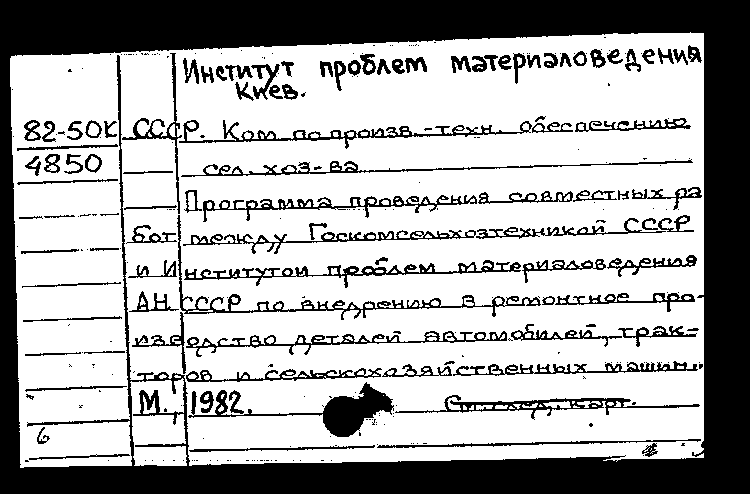 Институт проблем материаловедения
Киев.
82-50К СССР. Ком. по произв.-техн. обеспечению
4850 сел. хоз-ва
Программа проведения совместных ра
бот между Госкомсельхозтехникой СССР
и Институтом проблем материаловедения
АН СССР по внедрению в ремонтное про-
изводство деталей автомобилей, трак-
торов и сельскохозяйственных машин.
М., 1982. См. след. карт.
6